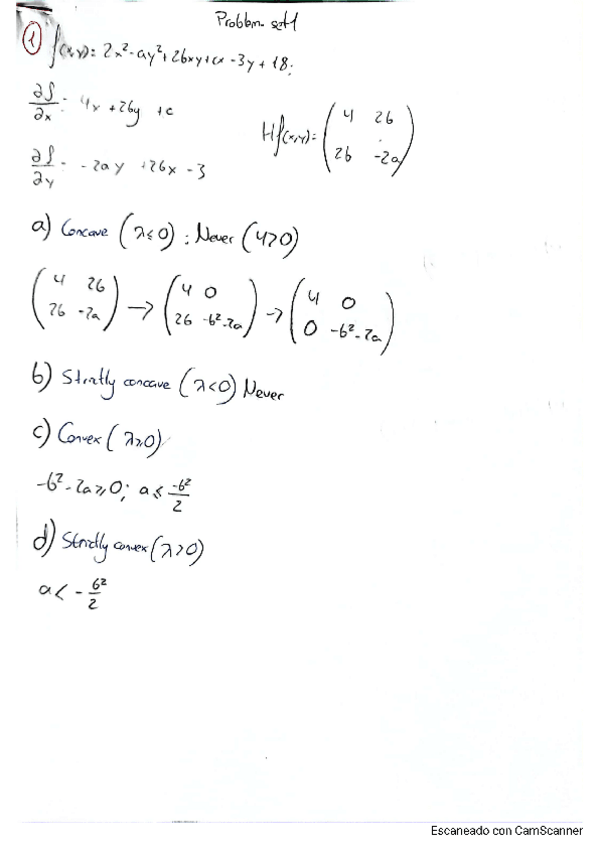 Problem set 1
① f(x,y) = 2x² - ay² + 2bxy + cx - 3y + 18;
∂f/∂x = 4x + 2by + c
Hf(x,y) = (4 2b; 2b -2a)
∂f/∂y = -2ay + 2bx - 3
a) Concave (λ ≤ 0) : Never (4 > 0)
(4 2b; 2b -2a) → (4 0; 2b -b²-2a) → (4 0; 0 -b²-2a)
b) Strictly concave (λ < 0) Never
c) Convex (λ ≥ 0)
-b² - 2a ≥ 0; a ≤ -b²/2
d) Strictly convex (λ > 0)
a < - b²/2
Escaneado con CamScanner